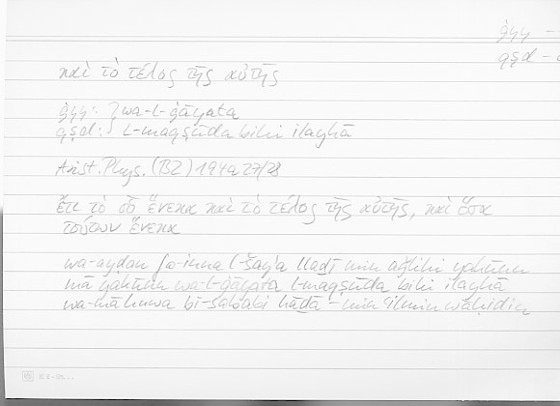 ġyy -
qṣd -
καὶ τὸ τέλος τῆς αὐτῆς
ġyy: } wa-l-ġāyata
qṣd: } l-maqṣūda bihī ilayhā
Arist. Phys. (B2) 194a27/28
ἔτι τὸ οὗ ἕνεκα καὶ τὸ τέλος τῆς αὐτῆς, καὶ ὅσα
τούτων ἕνεκα
wa-ayḍan fa-inna l-šayʾa llaḏī min aǧlihī yakūnu
mā yakūnu wa-l-ġāyata l-maqṣūda bihī ilayhā
wa-mā huwa bi-sababi hāḏā - min ʿilmin wāḥidin